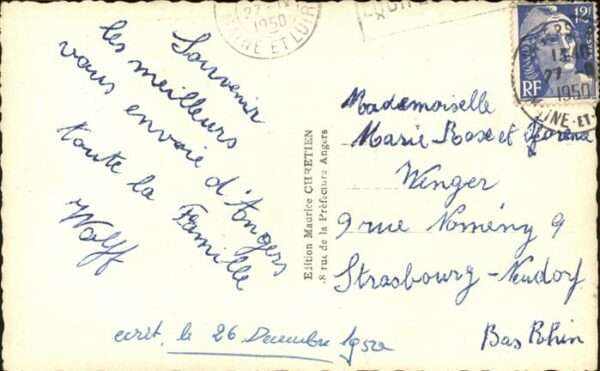 Souvenir
les meilleurs
vous envoie d'Angers
toute la Famille
Wolff
ecrit, le 26 Decembre
27
1950
NE ET LOIRE
12F
RF
27
1950
NE-ET-
Edition Maurice CHRETIEN
8 rue de la Préfecture Angers
Mademoiselle
Marie Rose et
Wenger
9 rue Nomény 9
Strasbourg-Neudorf
Bas Rhin